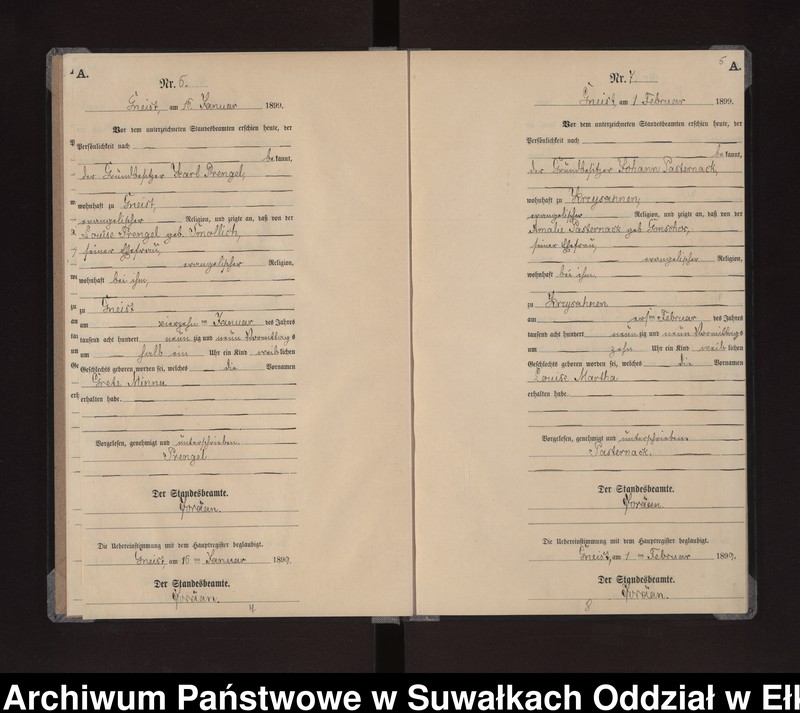 A.
Nr. 6.
Gneist, am 15 Januar 1899.
Vor dem unterzeichneten Standesbeamten erschien heute, der
Persönlichkeit nach
bekannt,
der Grundbesitzer Karl Prengel,
wohnhaft zu Gneist,
evangelischer Religion, und zeigte an, daß von der
Louise Prengel geb.
seiner Ehefrau,
evangelischer Religion,
wohnhaft bei ihm,
zu Gneist
am vierzehn ten Januar des Jahres
tausend acht hundert neun zig und neun Vormittags
um halb ein Uhr ein Kind weiblichen
Geschlechts geboren worden sei, welches die Vornamen
Grete Minna
erhalten habe.
Vorgelesen, genehmigt und unterschrieben.
Prengel
Der Standesbeamte.
Die Uebereinstimmung mit dem Hauptregister beglaubigt.
Gneist, am 15 ten Januar 1899.
Der Standesbeamte.
4
5
A.
Nr. 7.
Gneist, am 1 Februar 1899.
Vor dem unterzeichneten Standesbeamten erschien heute, der
Persönlichkeit nach
bekannt,
der Grundbesitzer Johann Pasternack,
wohnhaft zu Kreysahnen,
evangelischer Religion, und zeigte an, daß von der
Amalie Pasternack geb.
seiner Ehefrau,
evangelischer Religion,
wohnhaft bei ihm.
zu Kreysahnen
am ersten Februar des Jahres
tausend acht hundert neun zig und neun Vormittags
um zehn Uhr ein Kind weiblichen
Geschlechts geboren worden sei, welches die Vornamen
Louise Martha
erhalten habe.
Vorgelesen, genehmigt und unterschrieben
Pasternack.
Der Standesbeamte.
Die Uebereinstimmung mit dem Hauptregister beglaubigt.
Gneist, am 1 ten Februar 1899.
Der Standesbeamte.
8
Archiwum Państwowe w Suwałkach Oddział w Ełk